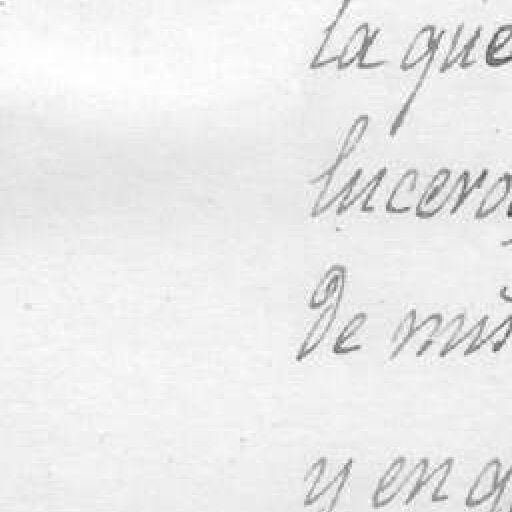 la que
lucero
De mis
y en